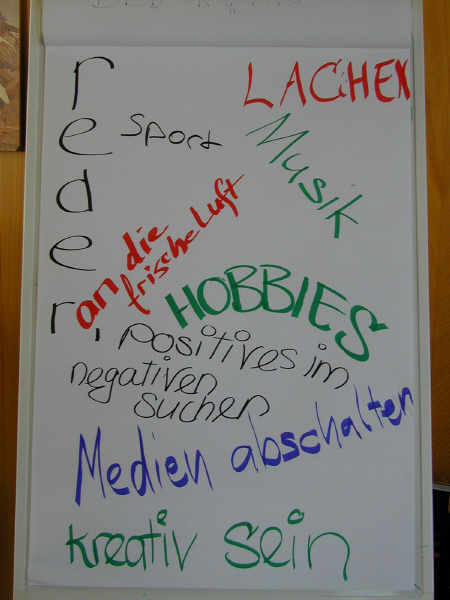 reden
LACHEN
Sport
Musik
an die
frische Luft
HOBBIES
positives im
negativen
suchen
Medien abschalten
kreativ sein